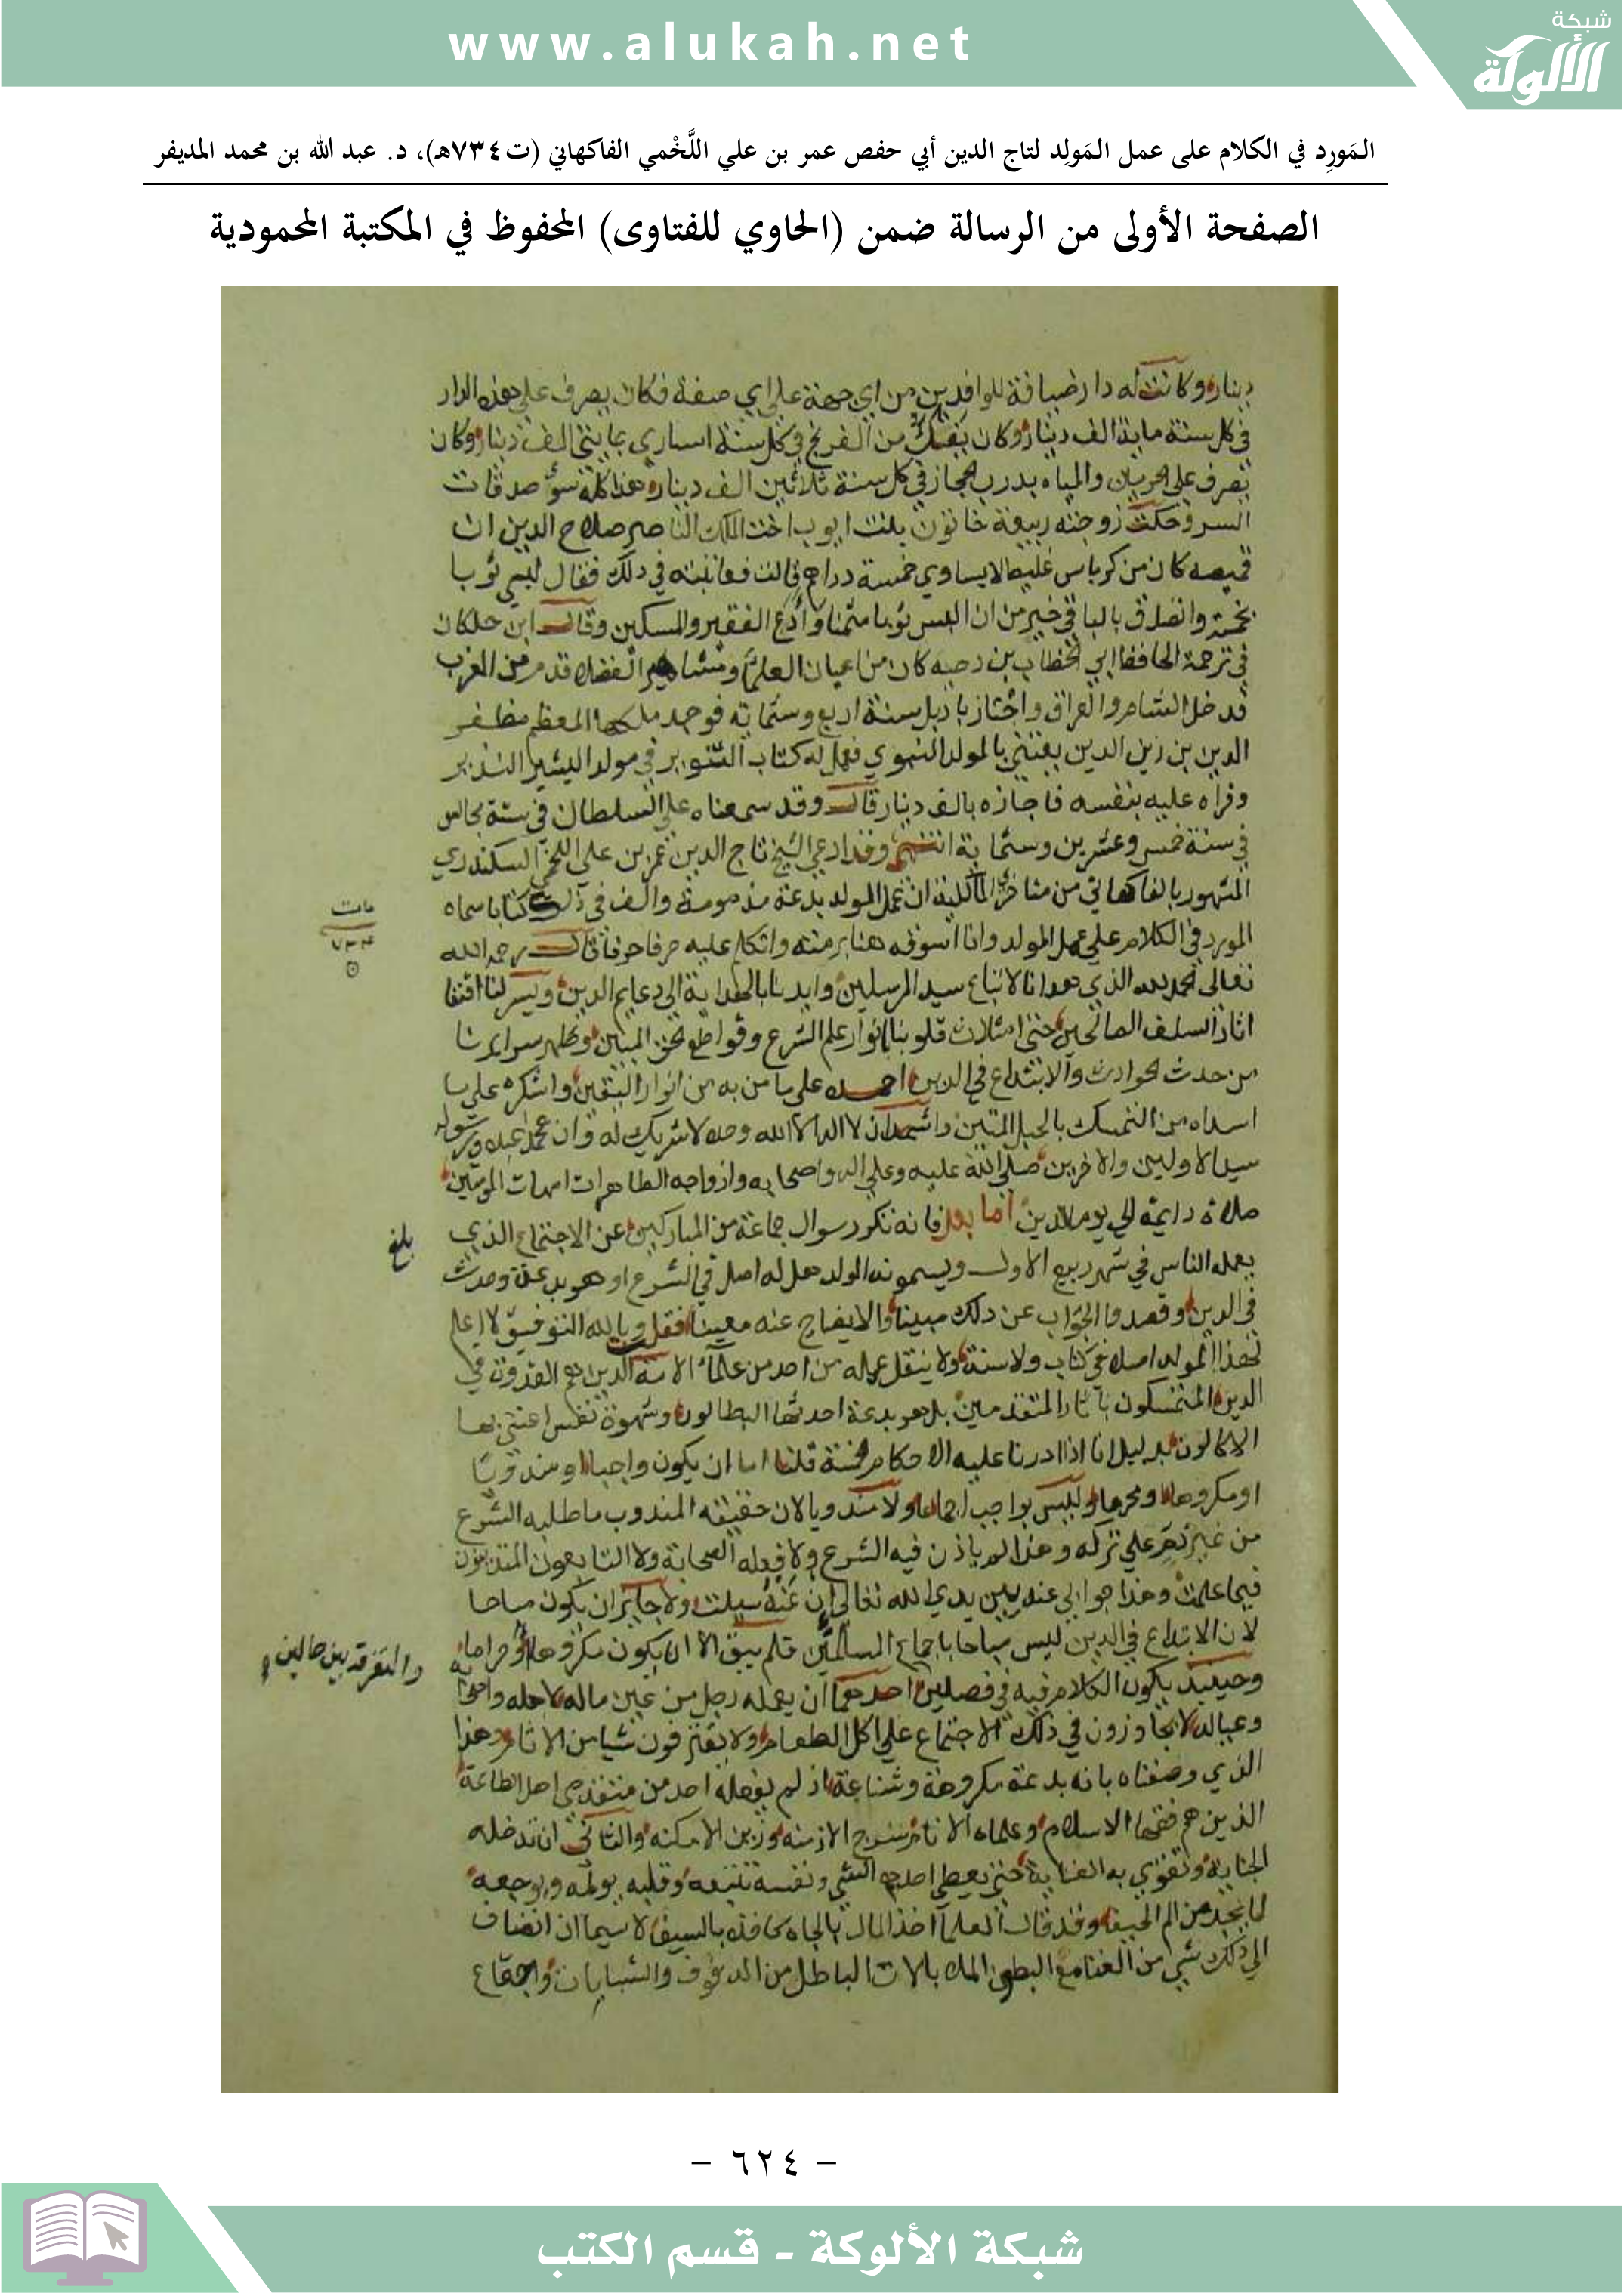 www.alukah.net
شبكة
الألوكة
المَورِد في الكلام على عمل المَولِد لتاج الدين أبي حفص عمر بن علي اللَّخْمي الفاكهاني (ت٧٣٤هـ)، د. عبد الله بن محمد المديفر
الصفحة الأولى من الرسالة ضمن (الحاوي للفتاوى) المحفوظ في المكتبة المحمودية
دينار وكانت له دار ضيافة للوافدين من اي جهة علي اي صفة فكان يصرف علي هذه الدار
في كل سنة ماية الف دينار وكان يفتك من الفرنج في كل سنة اساري بمايتي الف دينار وكان
يصرف علي الحرمين والمياه بدرب الحجاز في كل سنة ثلاثين الف دينار هذا كله سوي صدقات
السر وحكت زوجته ربيعة خاتون بنت ايوب اخت الملك الناصر صلاح الدين ان
قميصه كان من كرباس غليظ لا يساوي خمسة دراهم قالت فعاتبته في ذلك فقال لبسي ثوبا
بخمسة واتصدق بالباقي خير من ان البس ثوبا مثمنا وادع الفقير والمسكين وقال ابن خلكان
في ترجمة الحافظ ابي الخطاب بن دحيه كان من اعيان العلما ومشاهير الفضلا قدم من المغرب
فدخل الشام والعراق واجتاز باربل سنة اربع وستماية فوجد ملكها المعظم مظفر
الدين بن زين الدين يعتني بالمولد النبوي فعمل له كتاب التنوير في مولد البشير النذير
وقراه عليه بنفسه فاجازه بالف دينار قال وقد سمعناه علي السلطان في ستة مجالس
في سنة خمس وعشرين وستماية انتهي وقد ادعي الشيخ تاج الدين عمر بن علي اللخمي السكندري
المشهور بالفاكهاني من متاخري المالكية ان عمل المولد بدعة مذمومة والف في ذلك كتابا سماه
مات
٧٣٤
المورد في الكلام علي عمل المولد وانا اسوقه هنا برمته واتكلم عليه حرفا حرفا قال رحمه الله
تعالي الحمد لله الذي هدانا لاتباع سيد المرسلين وايدنا بالهداية الي دعايم الدين ويسر لنا اقتفا
اثار السلف الصالحين حتي امتلات قلوبنا بانوار علم الشرع وقواطع الحق المبين وطهر سرايرنا
من حدث الحوادث والابتداع في الدين احمده علي ما من به من انوار اليقين واشكره علي ما
اسداه من التمسك بالحبل المتين واشهد ان لا اله الا الله وحده لا شريك له وان محمدا عبده ورسوله
سيد الاولين والاخرين صلي الله عليه وعلي اله واصحابه وازواجه الطاهرات امهات المومنين
صلاة دايمة الي يوم الدين اما بعد فانه تكرر سوال جماعة من المباركين عن الاجتماع الذي
بلغ
يعمله الناس في شهر ربيع الاول ويسمونه المولد هل له اصل في الشرع او هو بدعة وحدث
في الدين وقصدوا الجواب عن ذلك مبينا والايضاح عنه معينا فقلت وبالله التوفيق لا اعلم
لهذا المولد اصلا في كتاب ولا سنة ولا ينقل عمله من احد من علماء الامة الذين هم القدوة في
الدين المتمسكون باثار المتقدمين بل هو بدعة احدثها البطالون وشهوة نفس اعتني بها
الاكالون بدليل انا اذا ادرنا عليه الاحكام الخمسة قلنا اما ان يكون واجبا او مندوبا
او مكروها او محرما وليس بواجب اجماعا ولا مندوبا لان حقيقة المندوب ما طلبه الشرع
من غير ذم علي تركه وهذا لم ياذن فيه الشرع ولا فعله الصحابة ولا التابعون المتدينون
فيما علمت وهذا جوابي عنه بين يدي الله تعالي ان عنه سيلت ولا جايز ان يكون مباحا
لان الابتداع في الدين ليس مباحا باجماع المسلمين فلم يبق الا ان يكون مكروها او حراما
والتفرقة بين حالين
وحينيذ يكون الكلام فيه في فصلين احدهما ان يعمله رجل من عين ماله لاهله واصحابه
وعياله لا يجاوزون في ذلك الاجتماع علي اكل الطعام ولا يقترفون شيا من الاثام وهذا
الذي وصفناه بانه بدعة مكروهة وشناعة اذ لم يفعله احد من متقدمي اهل الطاعة
الذين هم فقها الاسلام وعلماء الانام سرج الازمنه وزين الامكنه والثاني ان تدخله
الجناية وتقوي به العناية حتي يعطي احدهم الشي ونفسه تتبعه وقلبه يولمه ويوجعه
لما يجد من الم الحيف وقد قال العلما اخذ المال بالجاه كاخذه بالسيف لا سيما ان انضاف
الي ذلك شي من الغنا مع البطون الملا بالات الباطل من الدفوف والشبابات واجتماع
- ٦٢٤ -
شبكة الألوكة - قسم الكتب